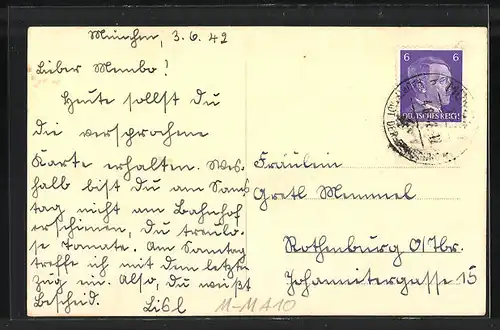 München, 3.6.42
Lieber Membo!
Heute sollst du
die versprochene
Karte erhalten. Wes-
halb bist du am Sams
tag nicht am Bahnhof
erschienen, du treulo-
se Tomate. Am Sonntag
treffe ich mit dem letzten
Zug ein. Also, du weißt
Bescheid.
Lisl
6 6
DEUTSCHES REICH
Fräulein
Gretl Memmel
Rothenburg O/Tbr.
Johannitergasse 15
M-MA10